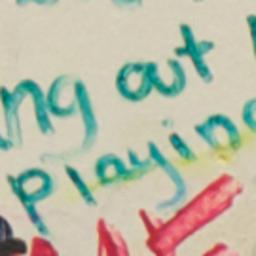 ng out
playing